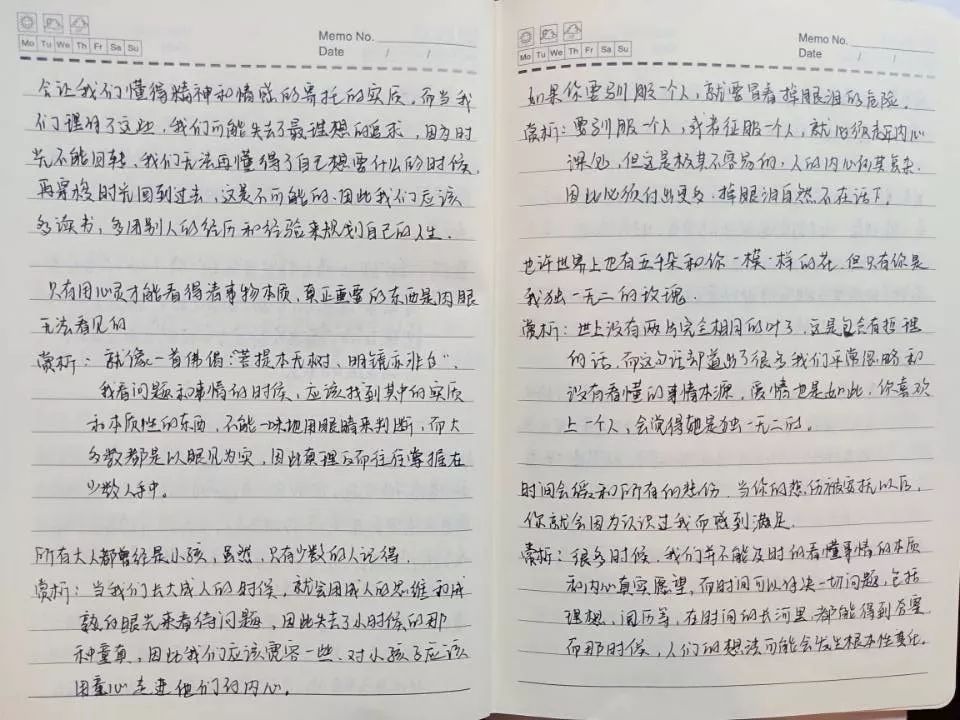 Mo Tu We Th Fr Sa Su
Memo No.
Date / /
会让我们懂得精神和情感的寄托的实质，而当我
们理解了这些，我们可能失去了最理想的追求，因为时
光不能回转，我们无法再懂得了自己想要什么的时候，
再穿梭时光回到过去，这是不可能的。因此我们应该
多读书，多用别人的经历和经验来规划自己的人生．
只有用心灵才能看得清事物本质，真正重要的东西是肉眼
无法看见的
赏析：就像一首佛偈："菩提本无树，明镜亦非台"．
我看问题和事情的时候，应该找到其中的实质
和本质性的东西，不能一味地用眼睛来判断，而大
多数都是以眼见为实，因此真理反而往往掌握在
少数人手中。
所有大人都曾经是小孩，虽然，只有少数的人记得．
赏析：当我们长大成人的时候，就会用成人的思维和成
熟的眼光来看待问题，因此失去了小时候的那
种童真，因此我们应该宽容一些．对小孩子应该
用童心走进他们的内心。
Mo Tu We Th Fr Sa Su
Memo No.
Date / /
如果你要驯服一个人，就要冒着掉眼泪的危险．
赏析：要驯服一个人，或者征服一个人，就必须走内心
，但这是极其不容易的，人的内心何其复杂．
因此必须付出更多．掉眼泪自然不在话下．
也许世界上也有五千朵和你一模一样的花．但只有你是
我独一无二的玫瑰．
赏析：世上没有两片完全相同的叶子，这是包含有哲理
的话．而这句话却道出了很多我们平常忽略和
没有看懂的事情本源．爱情也是如此．你喜欢
上一个人，会觉得她是独一无二的。
时间会缓和所有的悲伤．当你的悲伤被安抚以后，
你就会因为认识过我而感到满足．
赏析：很多时候．我们并不能及时的看懂事情的本质
和内心真实愿望．而时间可以解决一切问题，包括
理想、阅历等，在时间的长河里．都能得到答案
而那时候，人们的想法可能会发生根本性变化．